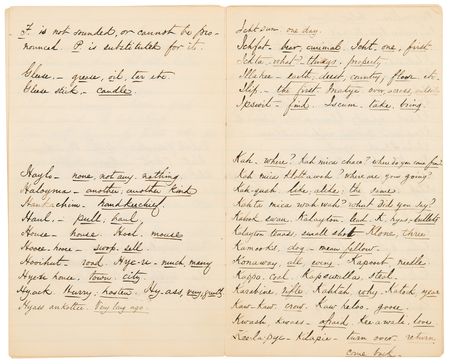 F. is not sounded, or cannot be pro-
nounced. P is substituted for it.
Gleuse.- grease, oil, tar etc
Gleuse stick.- candle.
Haylo- none, not any, nothing
Haloyma- another; another kind
Handachim- handkerchief.
Haul.- pull, haul,
House- house. Hool, mouse
Hooee-hooe- swop. sell.
Hooihut- road. Hye-u- much, many
Hyeu house, town, city
Hyack. Hurry, hasten. Hy-ass, very, great
Hyass ankottie. Very long ago.
Icht sun. one day.
Ichfat- bear, animal. Icht, one, first
Ickta, what? things, property
Illahee- earth, deer, country, floor etc.
Ilip.- the first. Inatye over, across,
Ipsoot- hid. Iscum- take, bring.
Kah- where? Kah mica chaco? where do you come from
Kah mica klatawah? where are you going?
Kah-quah like, alike; the same.
Kahta mica wah wah? what did you say?
Kalook swan. Kalayton. lead. K. hyas- bullets
Calayton tenas, small shot. Klone, three
Kamooks, dog- mean fellow.
Konaway, all, every. Kapoat needle
Kappo. Coat. Kapswalla, steal.
Karabine. rifle. Kahtah, why. Kalack year
Kaw-kaw. crow. Kaw heloo. goose.
Kwash, kwass- afraid. Kee a wale, love.
Keela pye- Kilapie- turn over, return,
come back.